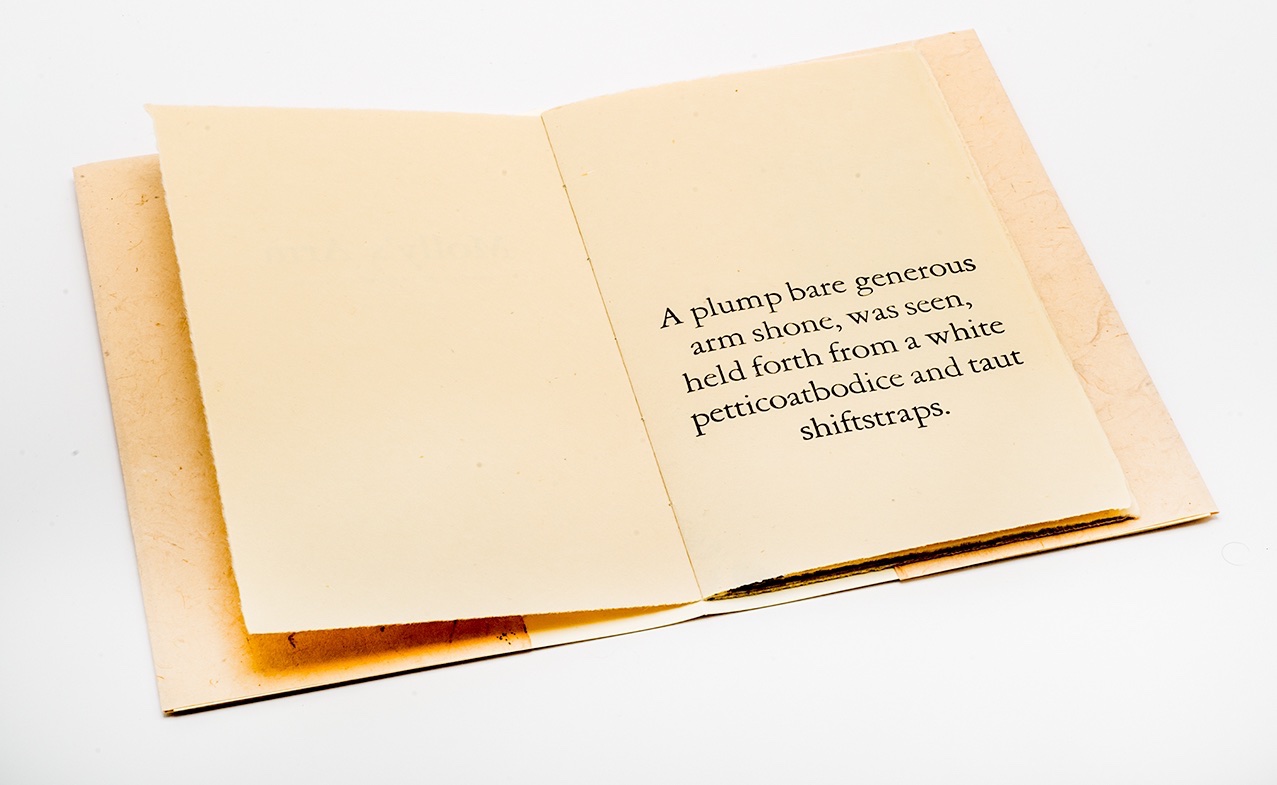 A plump bare generous
arm shone, was seen,
held forth from a white
petticoatbodice and taut
shiftstraps.